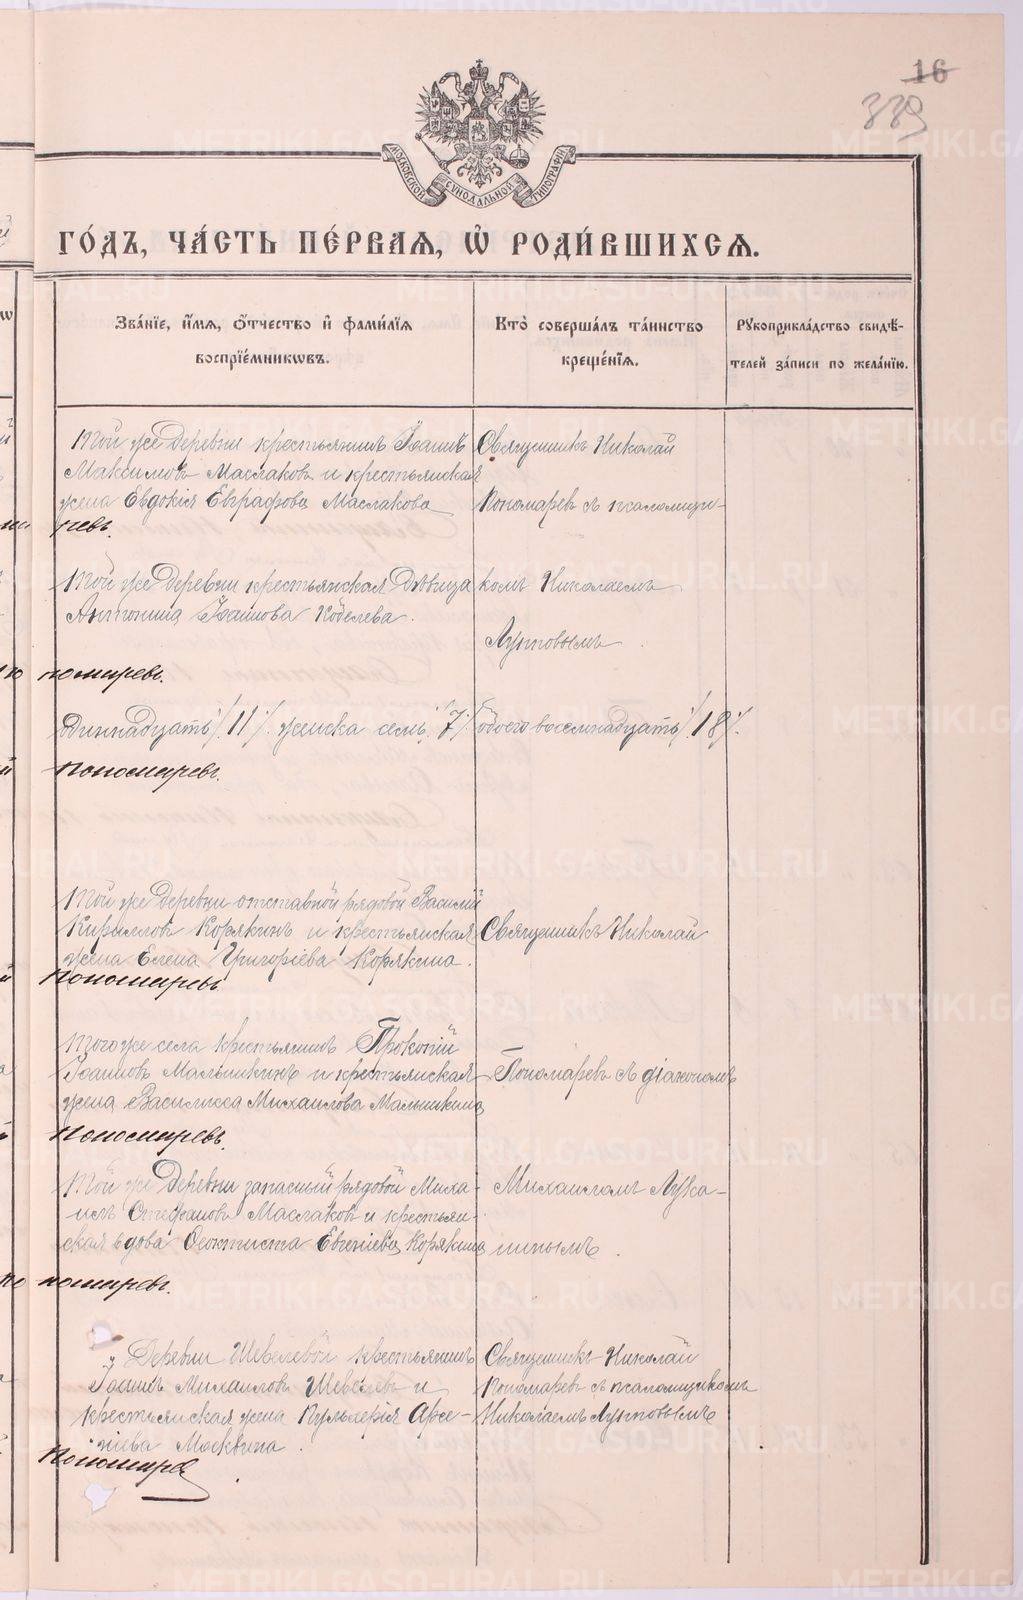 16
339
МОСКОВСКОЙ СѴНОДАЛЬНОЙ ТИПОГРАФІИ
ГО́ДЪ, ЧА́СТЬ ПЕ́РВАѦ, Ѡ҆ РОДИ́ВШИХСѦ.
Зва́нїе, и҆́мѧ, ѻ҆́тчество и҆ фамилїѧ
воспрїе́мникѡвъ.
Кто̀ соверша́лъ та́инство
креще́нїѧ.
Рꙋкоприкла́дство свидѣ́-
телей за́писи по жела́нїю.
Той же деревни крестьянинъ Іоаннъ
Максимовъ Маслаковъ и крестьянская
жена Евдокія Евграфова Маслакова
Священникъ Николай
Пономаревъ съ псаломщи-
ревъ.
Той же деревни крестьянская дѣвица
Антонина Іоаннова Кобелева.
комъ Николаемъ
Лутовымъ
номаревъ.
одиннадцать /11/. женска семь /7/. обоего восемнадцать /18/.
Пономаревъ.
Той же деревни отставной рядовой Василій
Кирилловъ Корякинъ и крестьянская
жена Елена Григоріева Корякина.
Священникъ Николай
Пономаревъ
Того же села крестьянинъ Прокопій
Іоанновъ Малышкинъ и крестьянская
жена Василисса Михаилова Малышкина
Пономаревъ съ діакономъ
Пономаревъ.
Той же деревни запасный рядовой Миха-
илъ Стефановъ Маслаковъ и крестьян-
ская вдова Ѳеоктиста Евгеніева Корякина
Михаиломъ Лука-
нинымъ.
номаревъ.
Деревни Шевелевой крестьянинъ
Іоаннъ Михаиловъ Шевелевъ и
крестьянская жена Пульхерія Арсе-
ніева Москвина.
Священникъ Николай
Пономаревъ съ псаломщикомъ
Николаемъ Лутовымъ
Пономарев
METRIKI.GASO-URAL.RU